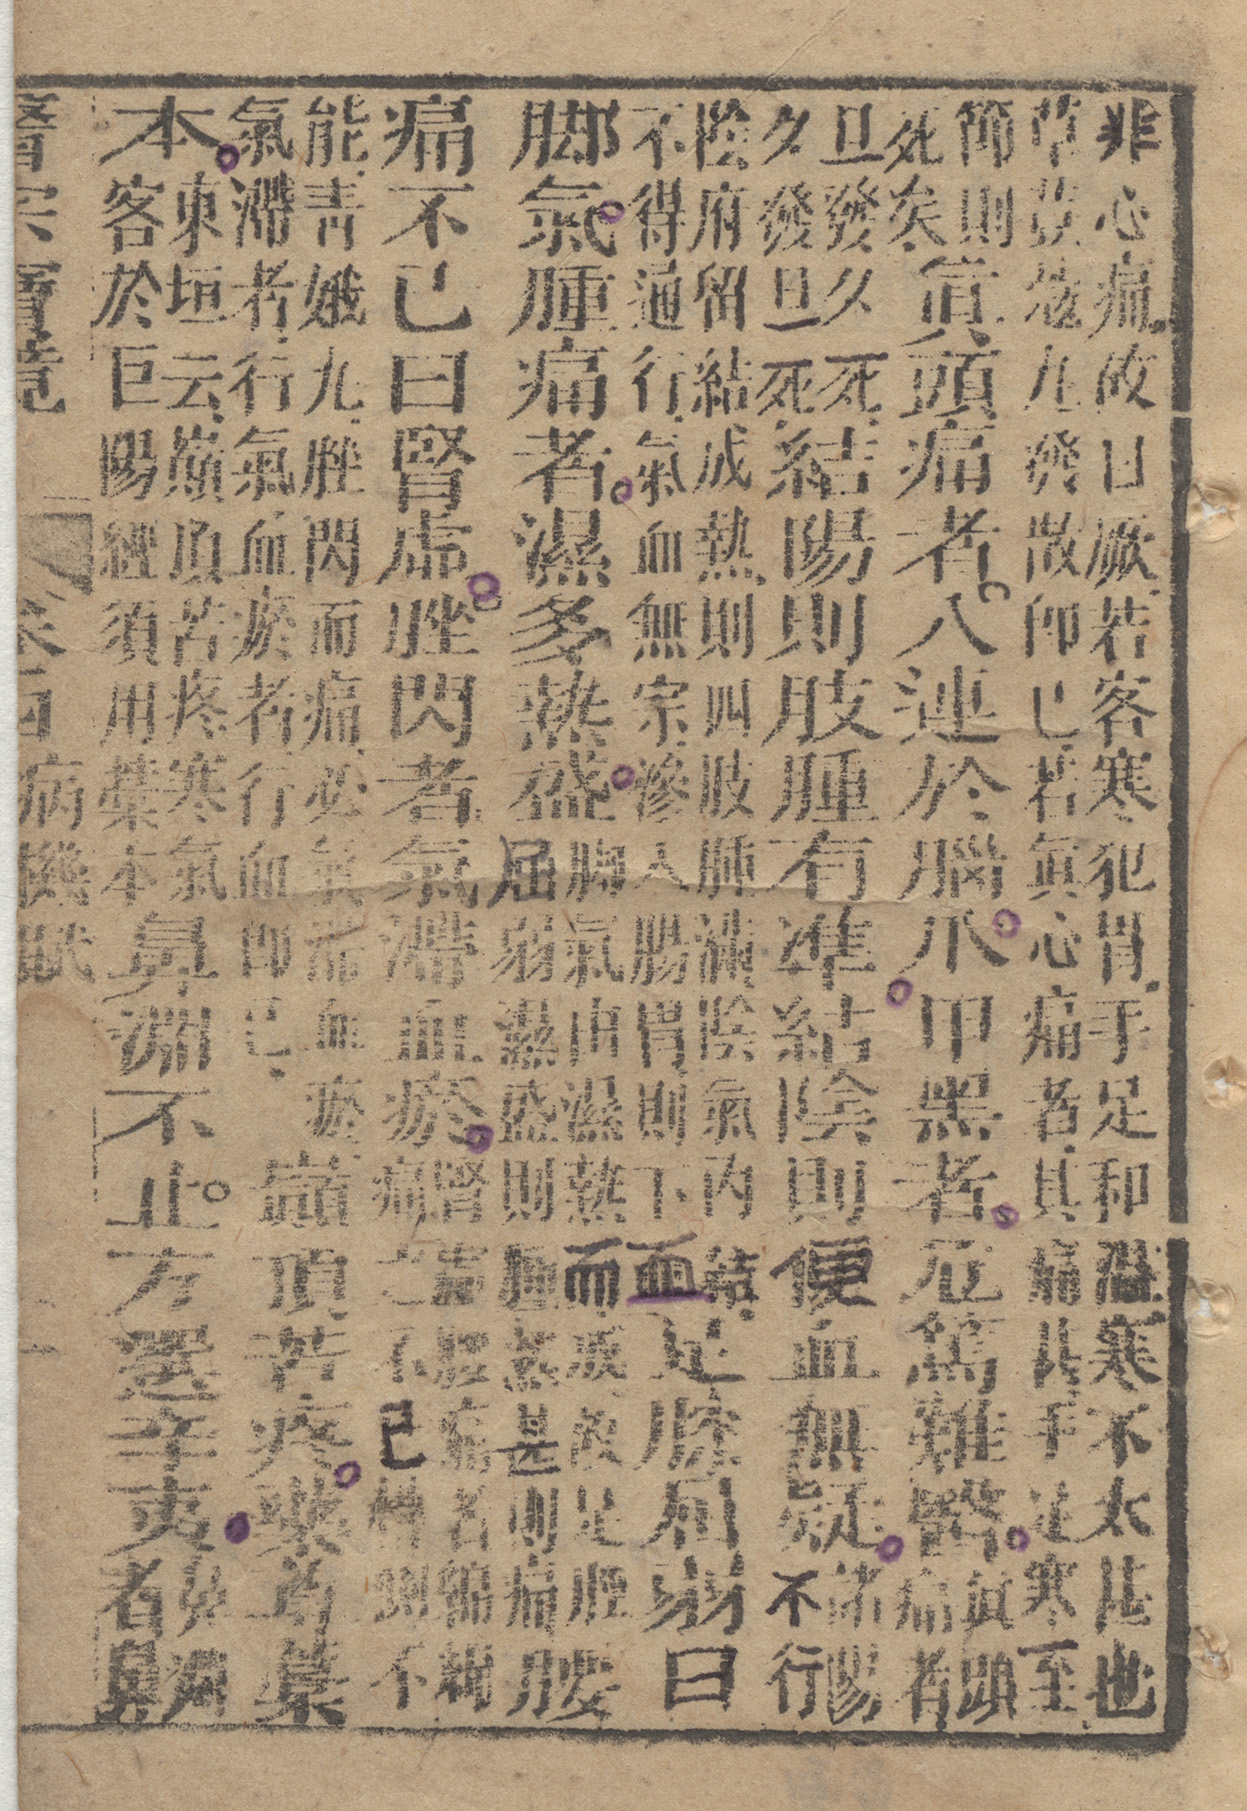 非心痛故曰厥若客寒犯胃手足和溫寒不太甚也
草荳蔻丸發散仰已若真心痛者其痛甚手足寒至
節則
死矣
真頭痛者八連於腦爪甲黑者危篤難醫
真頭
痛者
旦發久死
久發旦死
結陽則肢腫有準結陰則便血無疑
諸陽
不行
陰府留結成熱則四肢腫滿陰氣內結
不得通行氣血無宗滲入腸胃則下血
足膝屈弱曰
脚氣腫痛者濕多熱盛
脚氣由濕熱而成故足脛
屈弱濕盛則腫熱甚則痛
腰
痛不已曰腎虛脞閃者氣滯血瘀
腎虛腰痛者綿綿
痛之不已脞閃則不
能青娥丸脞閃而痛必氣滯血瘀
氣滯者行氣血瘀者行血即已
巔頂苦疼藥尋藁
本
東垣云巔頂苦疼寒氣
客於巨陽經須用藁本
鼻淵不止方選辛夷
鼻淵
者鼻
醫宗寶鏡 卷 百病機賦